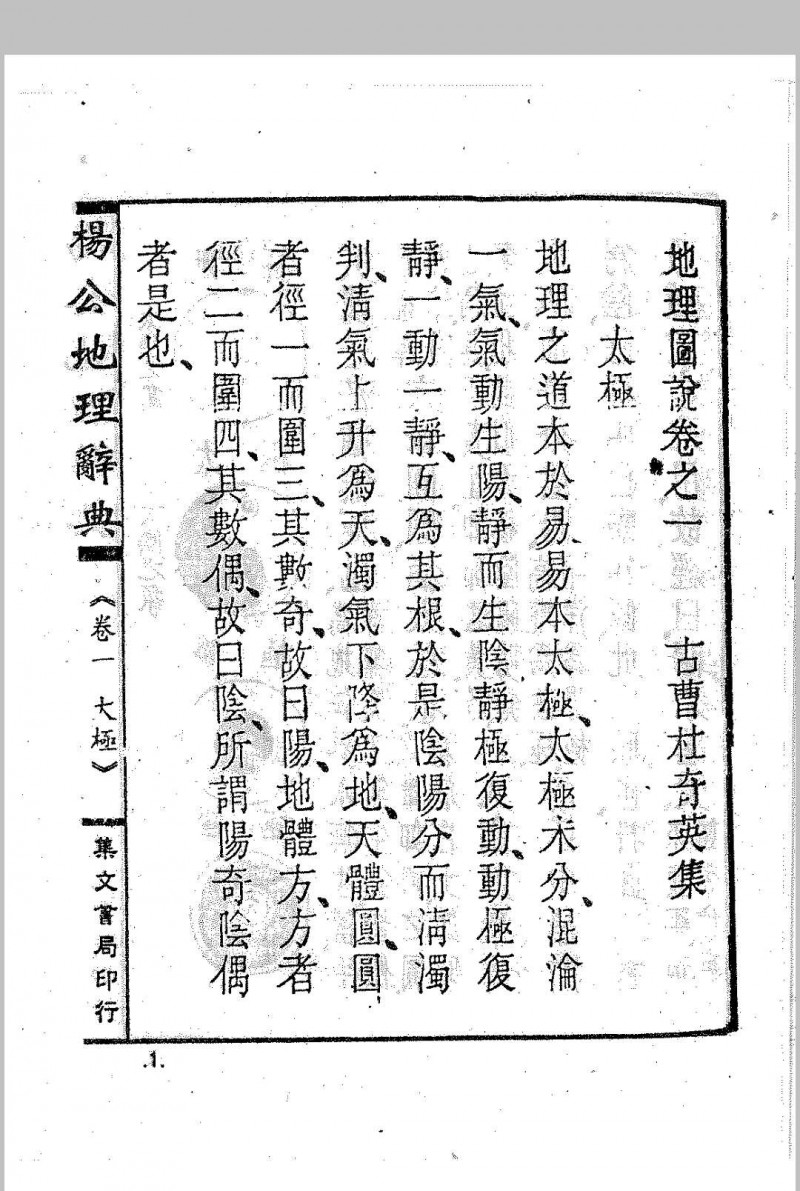 地理圖說卷之一　古曹杜奇英集
太極
地理之道本於易易本太極、太極未分、混淪
一氣、氣動生陽、靜而生陰靜極復動、動極復
靜、一動一靜、互為其根、於是陰陽分而淸濁
判、淸氣上升為天、濁氣下降為地、天體圓、圓
者徑一而圍三、其數奇、故曰陽、地體方、方者
徑二而圍四、其數偶、故曰陰、所謂陽奇陰偶
者是也、
楊公地理辭典
《卷一　太極》
集文書局印行
.1.